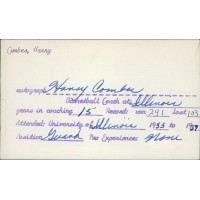 Combes, Harry
autograph: Harry Combes
Basketball Coach at: Illinois
years in coaching 15 Record: won 241 lost 103
Attended: University of Illinois 1933 to 1937
Position: Guard Pro Experience: None